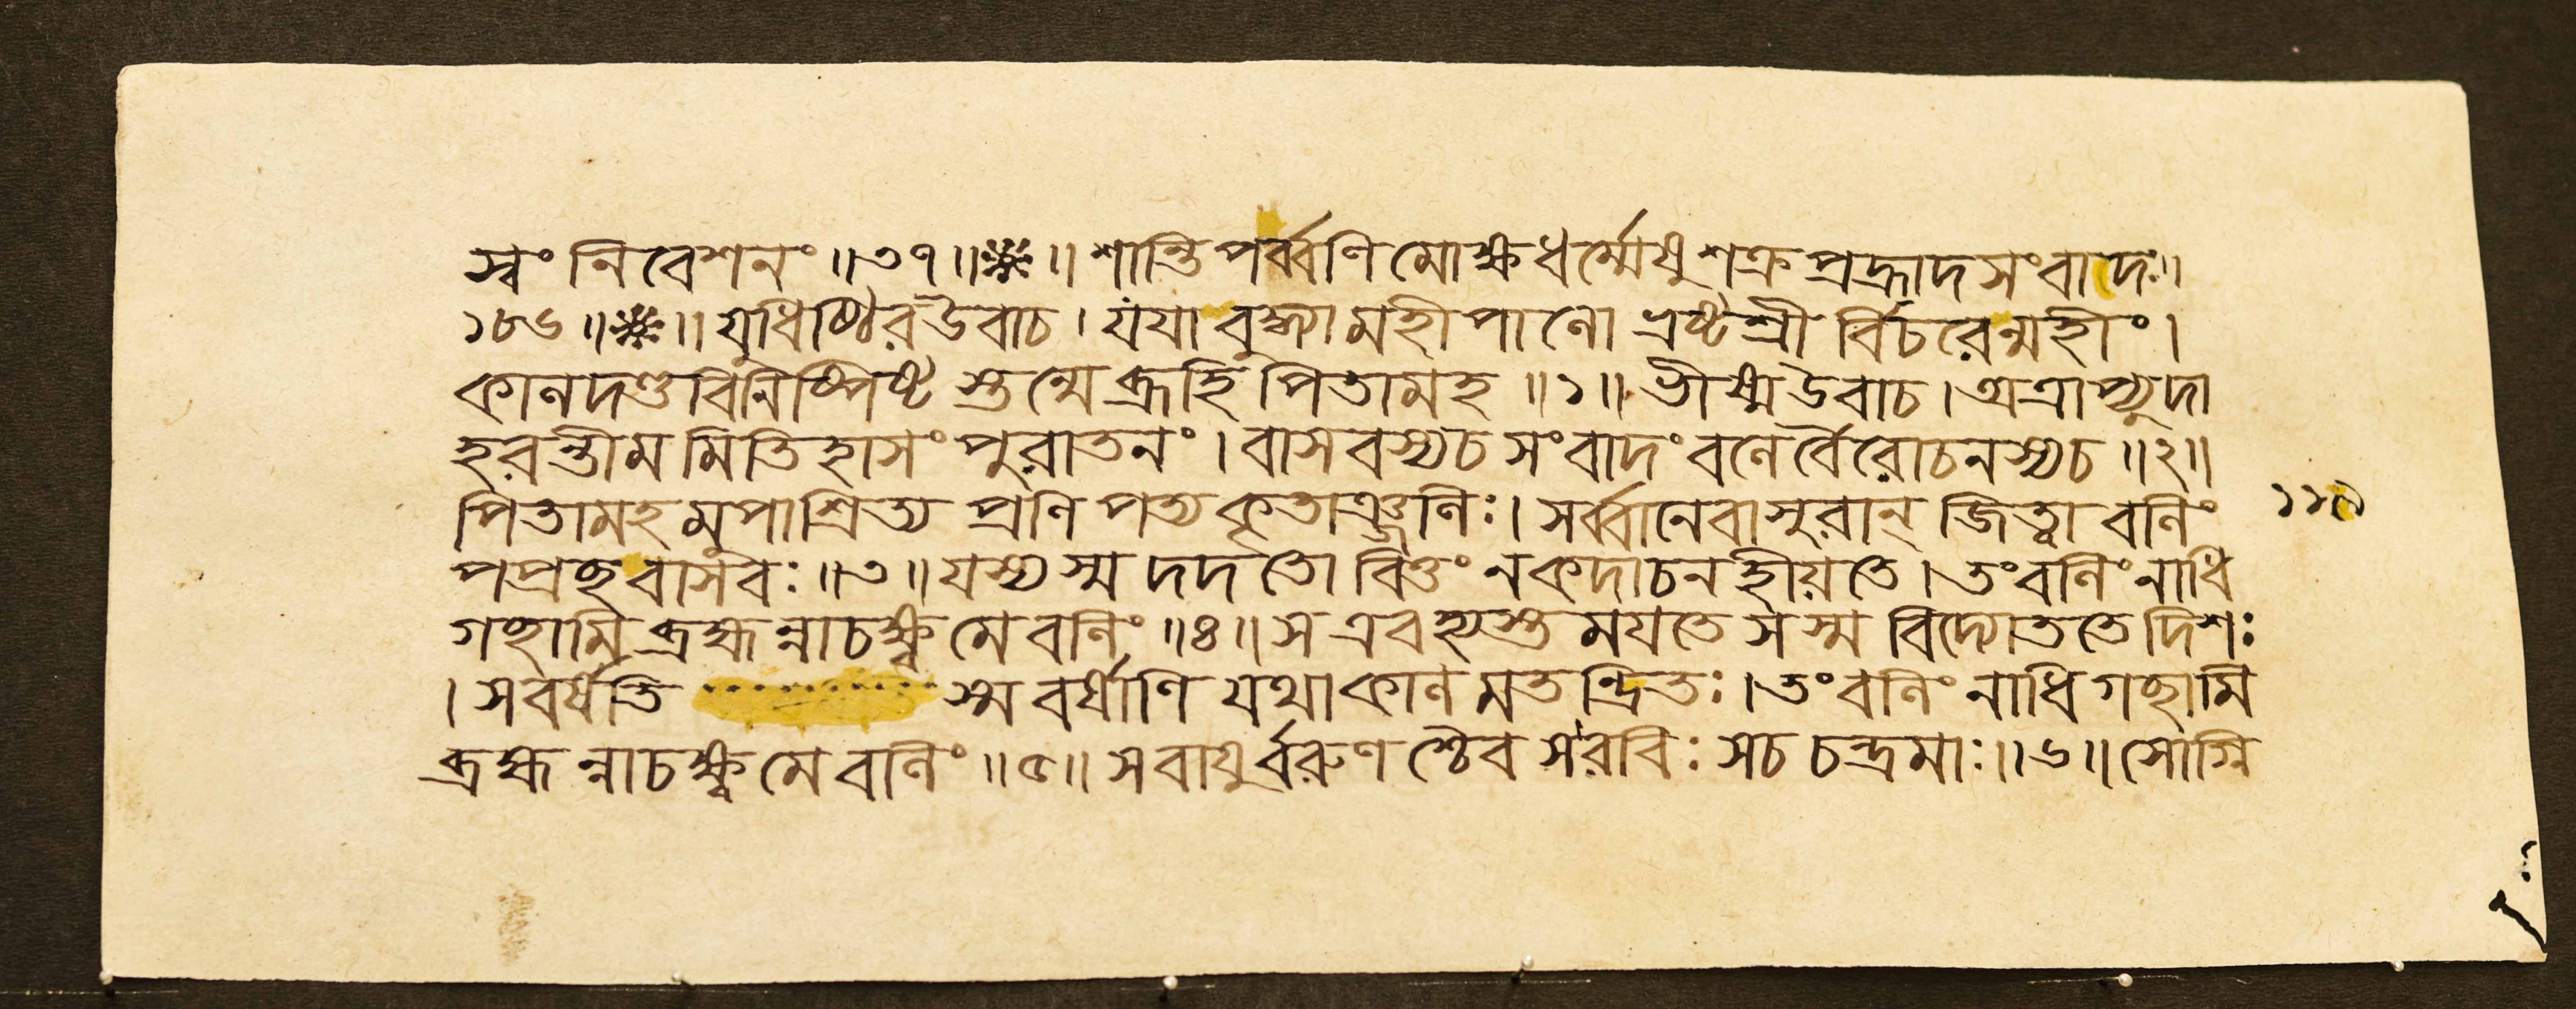 স্বং নিবেশনং ॥৩৭॥※॥ শান্তি পর্ব্বণি মোক্ষধর্ম্মেষু শক্র প্রহ্লাদ সংবাদঃ॥
১৮৬ ॥※॥ যুধিষ্ঠির উবাচ । যযা বুদ্ধ্যা মহীপালো ভ্রষ্টশ্রী র্বিচরেন্মহীং ।
কালদণ্ড বিনিষ্পিষ্ট স্তন্মে ব্রূহি পিতামহ ॥১॥ ভীষ্ম উবাচ । অত্রাপ্যুদা
হরন্তীম মিতিহাসং পুরাতনং । বাসবস্যচ সংবাদং বলে র্বৈরোচনস্যচ ॥২॥
পিতামহ মুপাশ্রিত্য প্রণি পত্য কৃতাঞ্জলিঃ । সর্ব্বানেবাসুরান্ জিত্বা বলিং
পপ্রচ্ছ বাসবঃ ॥৩॥ যস্য স্ম দদতো বিত্তং ন কদাচন হীয়তে । তং বলিং নাধি
গচ্ছামি ব্রহ্মন্নাচক্ষ্ব মে বলিং ॥৪॥ স এব হ্যস্ত ময়তে স স্ম বিদ্যোততে দিশঃ
। স বর্ষতি স্ম বর্ষাণি যথাকাল মতন্দ্রিতঃ । তং বলিং নাধি গচ্ছামি
ব্রহ্মন্নাচক্ষ্ব মে বলিং ॥৫॥ স বায়ু র্বরুণ শ্চৈব স রবিঃ স চ চন্দ্রমাঃ ॥৬॥ সোগ্নি